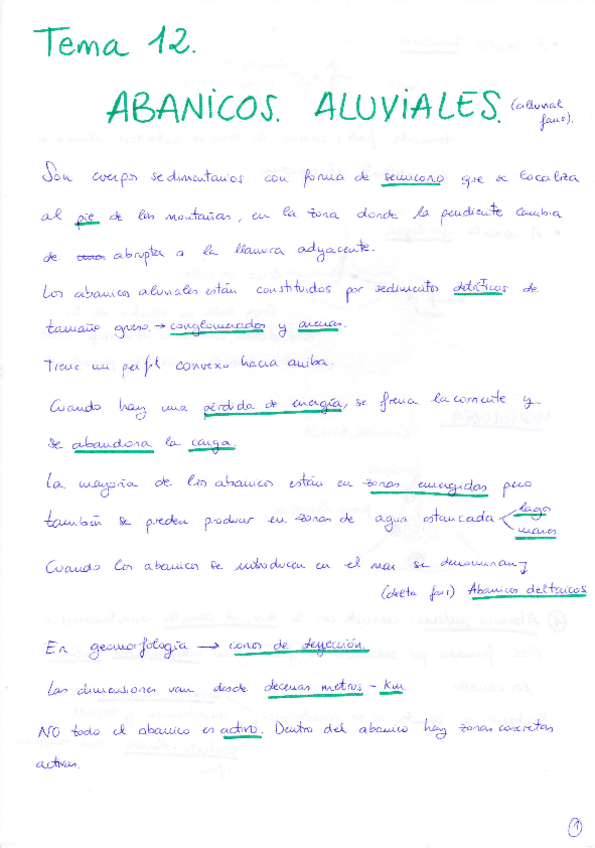 Tema 12.
ABANICOS. ALUVIALES. (alluvial fans).
Son cuerpos sedimentarios con forma de semicono que se localiza
al pie de las montañas, en la zona donde la pendiente cambia
de abrupta a la llanura adyacente.
Los abanicos aluviales están constituidos por sedimentos detríticos de
tamaño grueso → conglomerados y arenas.
Tiene un perfil convexo hacia arriba.
Cuando hay una pérdida de energía, se frena la corriente y
se abandona la carga.
La mayoría de los abanicos están en zonas emergidas pero
también se pueden producir en zonas de agua estancada < lagos
mares
Cuando los abanicos se introducen en el mar se denominan
(delta fans) Abanicos deltaicos
En geomorfología → conos de deyección.
Las dimensiones van desde decenas metros - km
NO todo el abanico es activo. Dentro del abanico hay zonas concretas
activas.
1